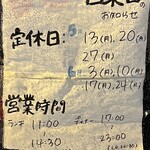 のお知らせ
定休日: 5/ 13(月),20(月)
27(月)
6/ 3(月),10(月)
17(月),24(月)
営業時間
ランチ 11:00
14:30
ディナー 17:00
23:00